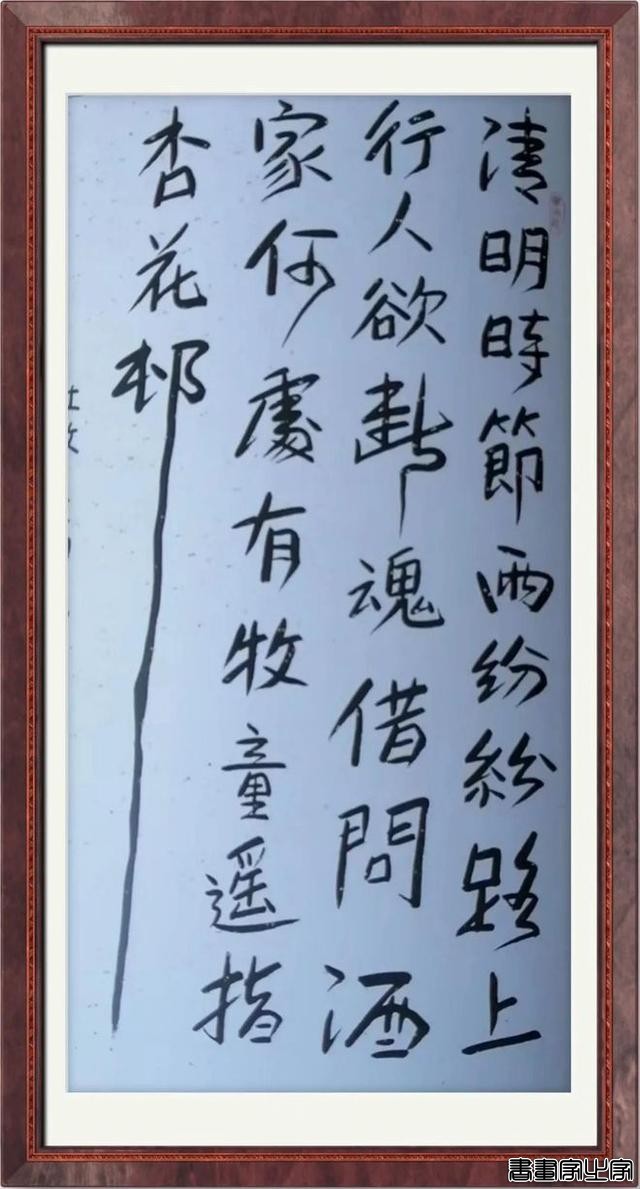 清明時節雨纷紛路上
行人欲斷魂借問酒
家何處有牧童遥指
杏花邨
杜牧
書畫家之家